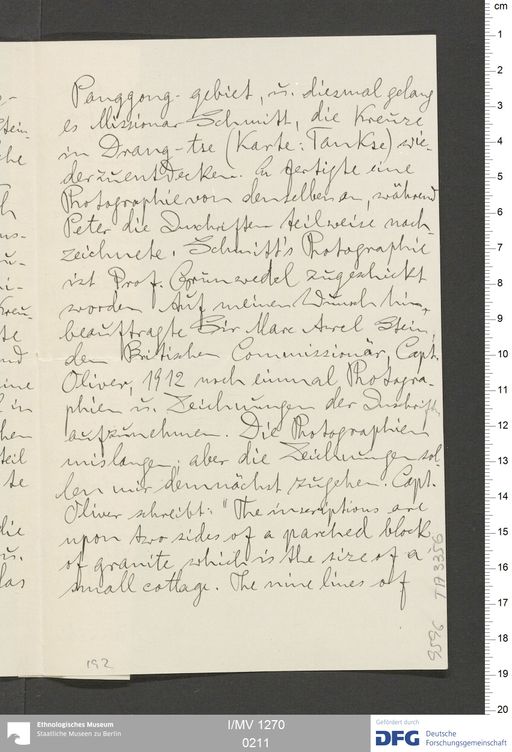 Panggong-gebiet, u. diesmal gelang
es Missionar Schmitt, die Kreuze
in Drang-tse (Karte: Tankse) wie-
derzuentdecken. Er fertigte eine
Photographie von denselben an, während
Peter die Inschriften teilweise nach-
zeichnete. Schmitt's Photographie
ist Prof. Grünwedel zugeschickt
worden. Auf meinen Wunsch hin,
beauftragte Sir Marc Aurel Stein,
den Britischen Commissionär, Capt.
Oliver, 1912 noch einmal Photogra-
phien u. Zeichnungen der Inschriften
aufzunehmen. Die Photographien
mislangen, aber die Zeichnungen sol-
len mir demnächst zugehen. Capt.
Oliver schreibt: "The inscriptions are
upon two sides of a parched block
of granite which is the size of a
small cottage. The nine lines of
192
9596 TA3356
cm
1
2
3
4
5
6
7
8
9
10
11
12
13
14
15
16
17
18
19
20
Ethnologisches Museum
Staatliche Museen zu Berlin
I/MV 1270
0211
Gefördert durch
DFG Deutsche
Forschungsgemeinschaft